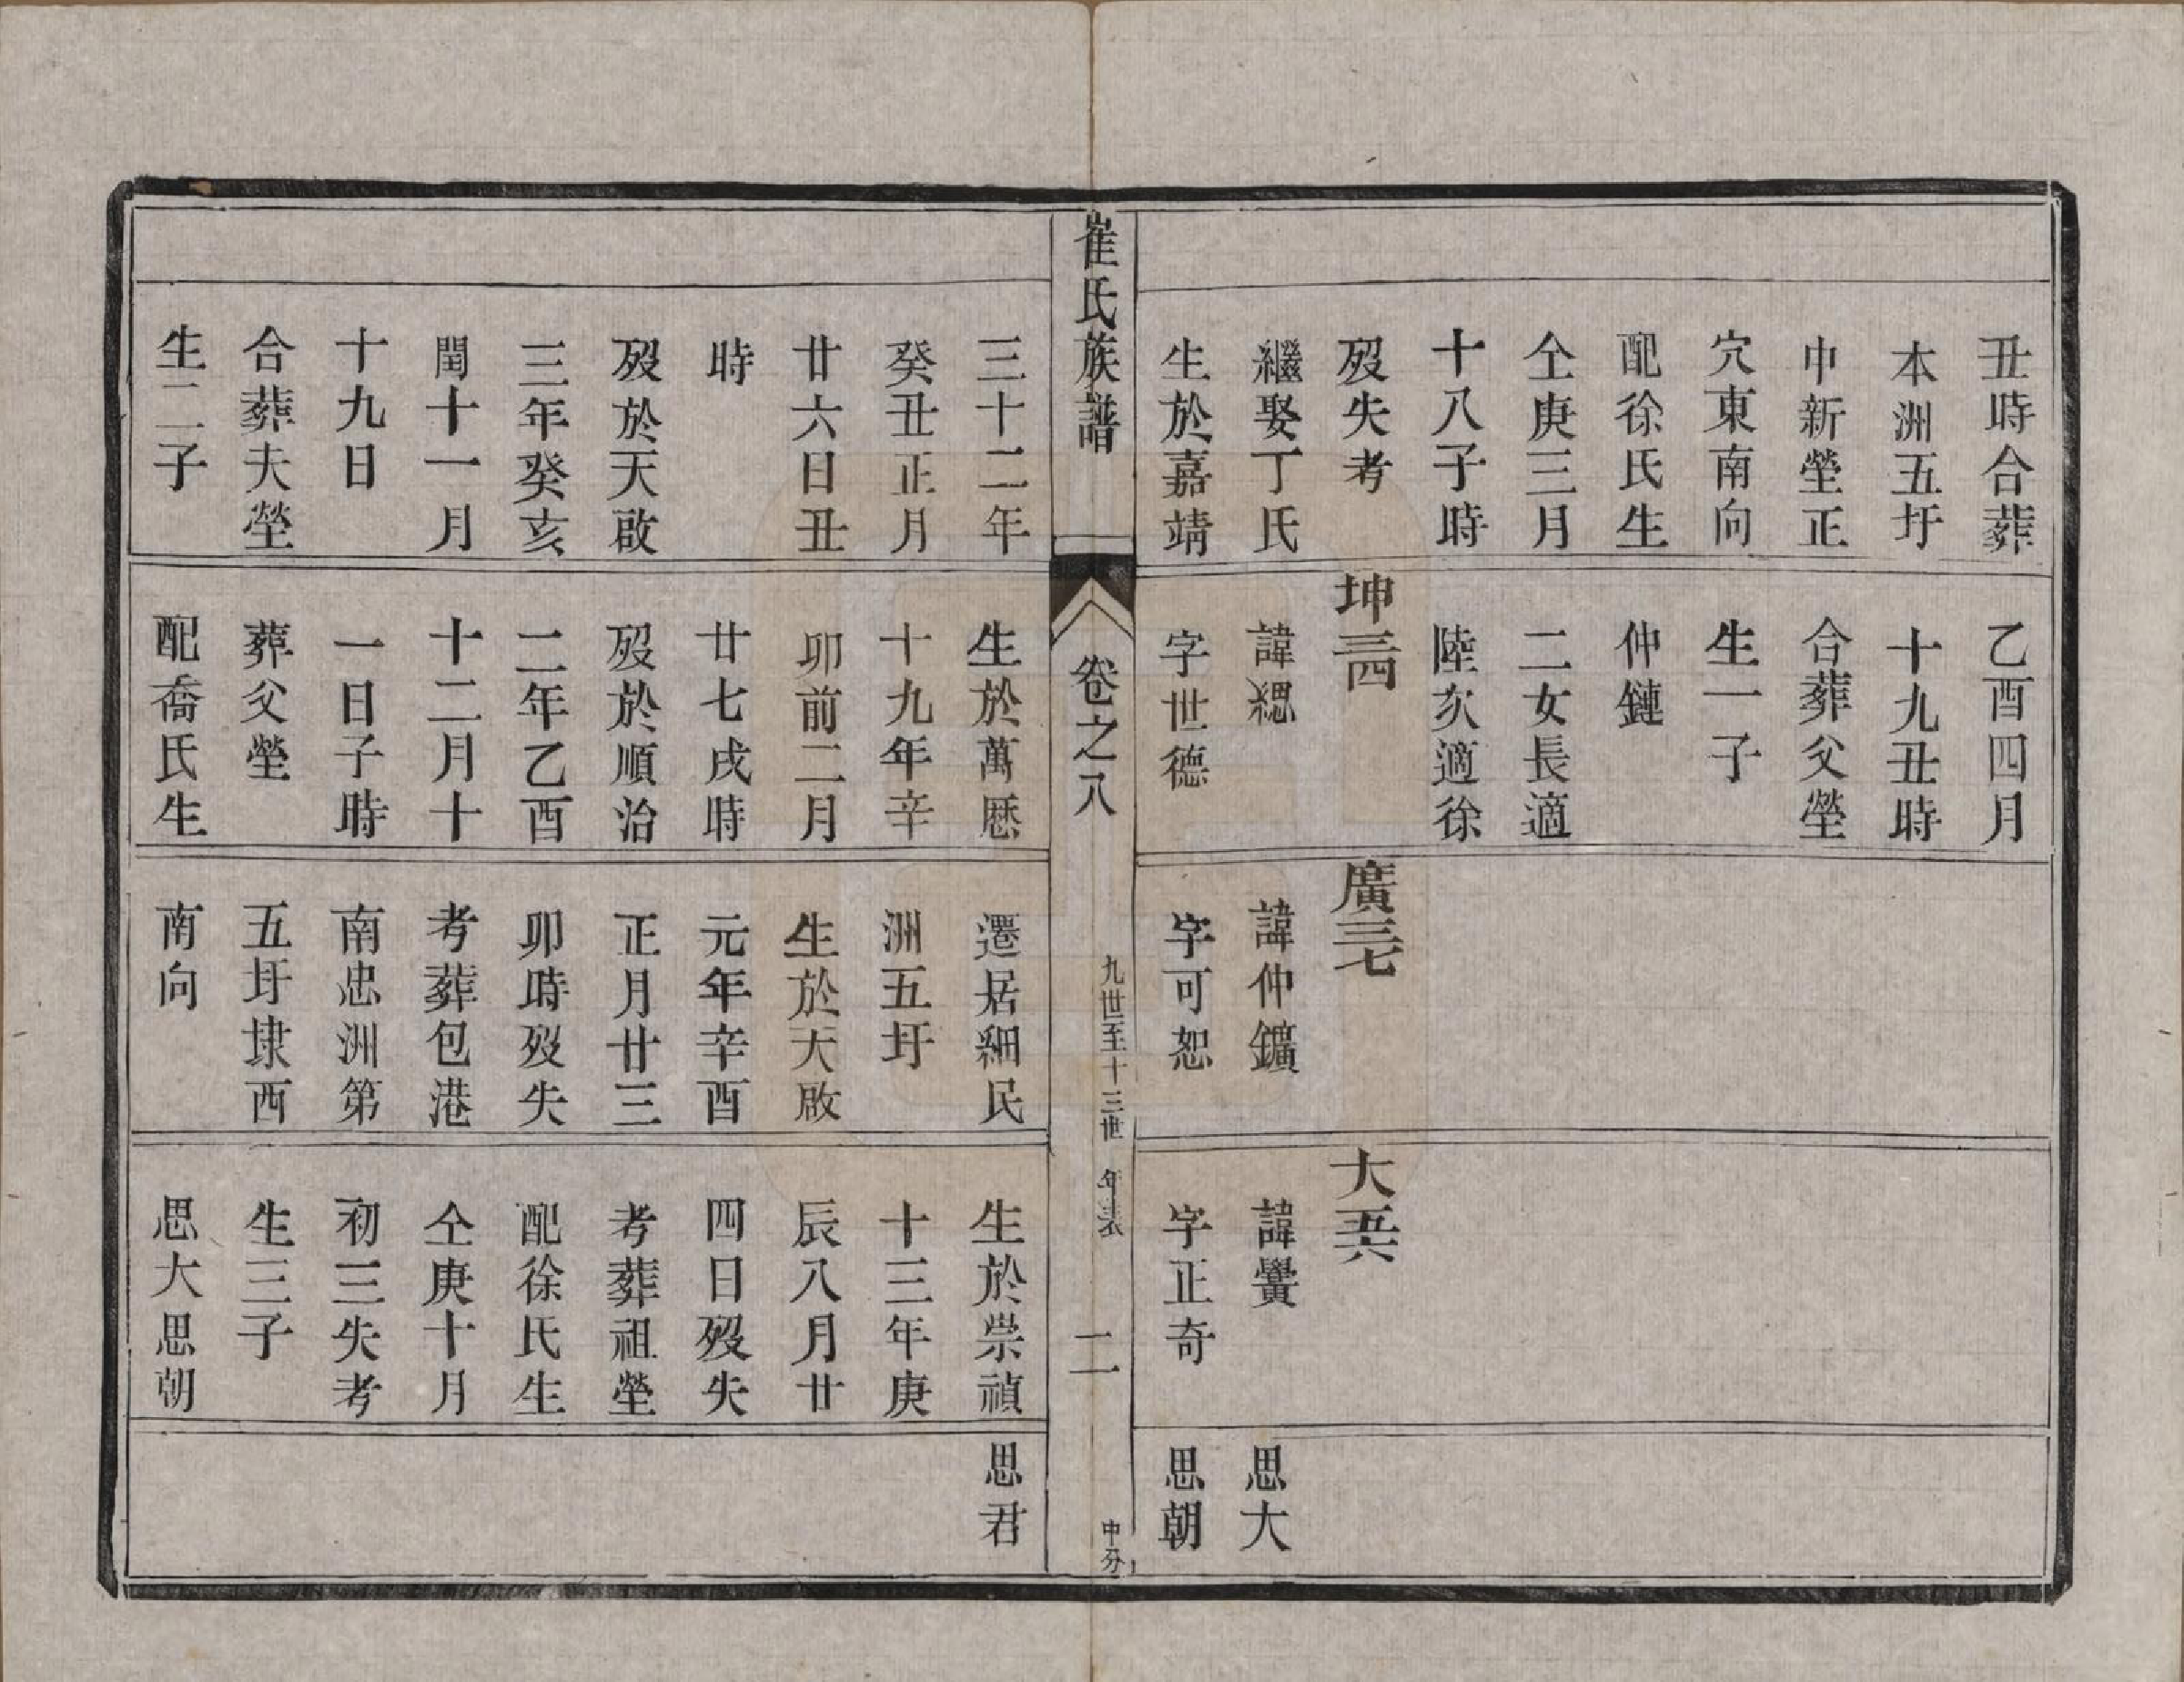 丑時合葬
本洲五圩
中新塋正
穴東南向
配徐氏生
仝庚三月
十八子時
歿失考
繼娶丁氏
生於嘉靖
乙酉四月
十九丑時
合葬父塋
生一子
仲鏈
二女長適
陸次適徐
坤三四
諱緫
字世德
廣三七
諱仲鑛
字可恕
大五六
諱黌
字正奇
思大
思朝
崔氏族譜
卷之八
九世至十三世 年表
二
中分
三十二年
癸丑正月
廿六日丑
時
歿於天啟
三年癸亥
閏十一月
十九日
合葬夫塋
生二子
生於萬歷
十九年辛
卯前二月
廿七戌時
歿於順治
二年乙酉
十二月十
一日子時
葬父塋
配喬氏生
遷居細民
洲五圩
生於天啟
元年辛酉
正月廿三
卯時歿失
考葬包港
南忠洲第
五圩埭西
南向
生於崇禎
十三年庚
辰八月廿
四日歿失
考葬祖塋
配徐氏生
仝庚十月
初三失考
生三子
思大思朝
思君